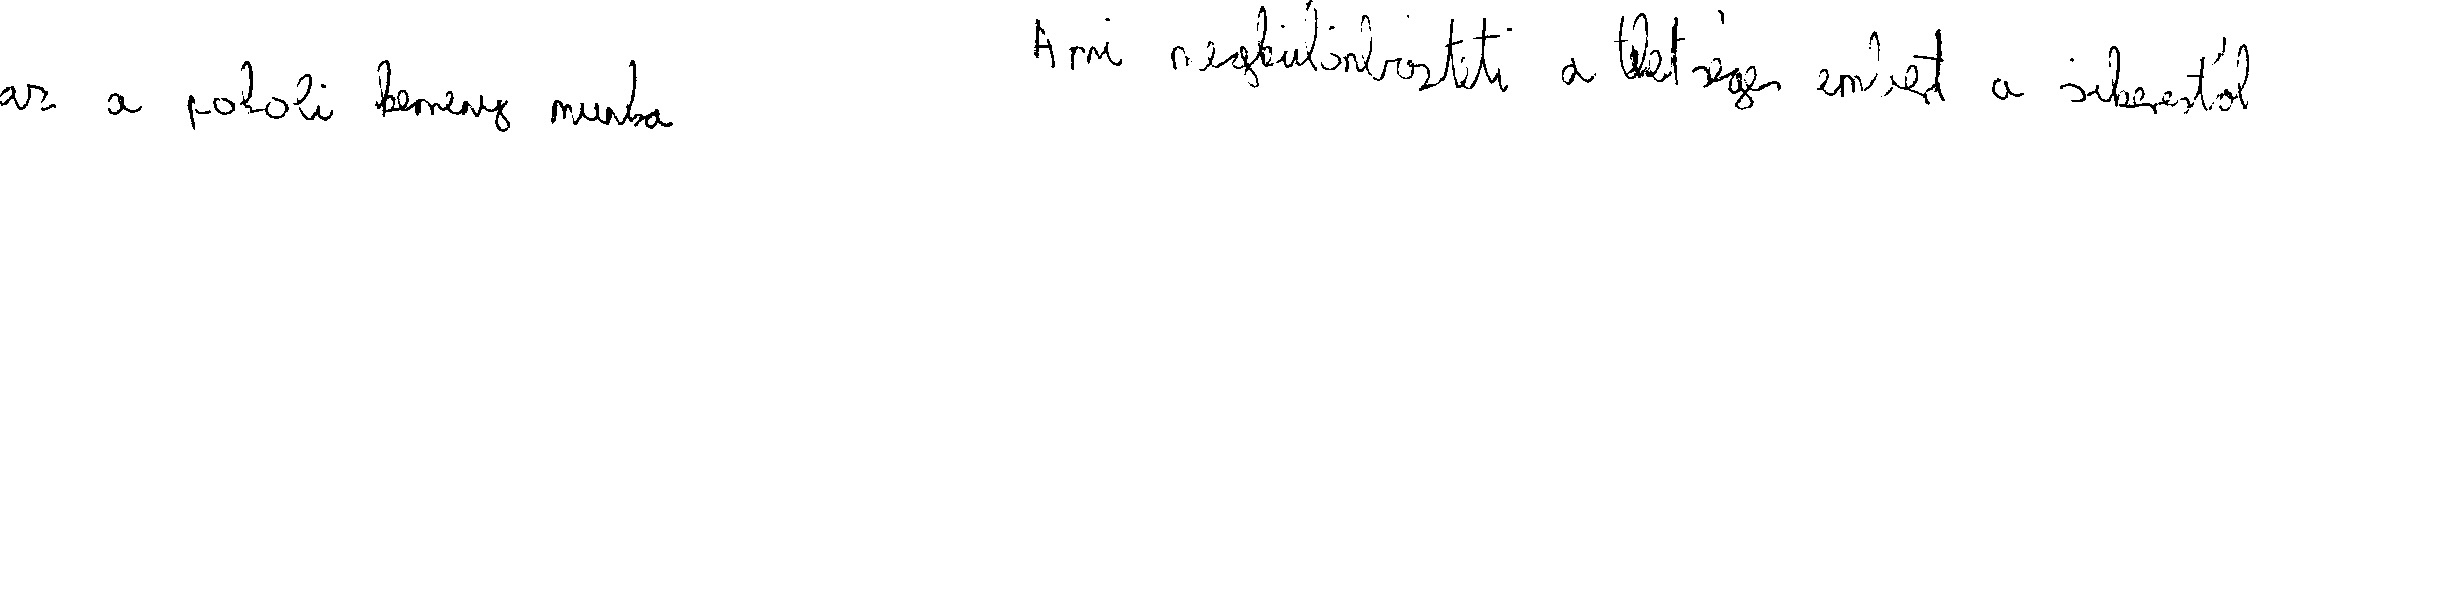 Ami megkülönbözteti a tehetséges embert a sikerestől
az a pokoli kemény munka